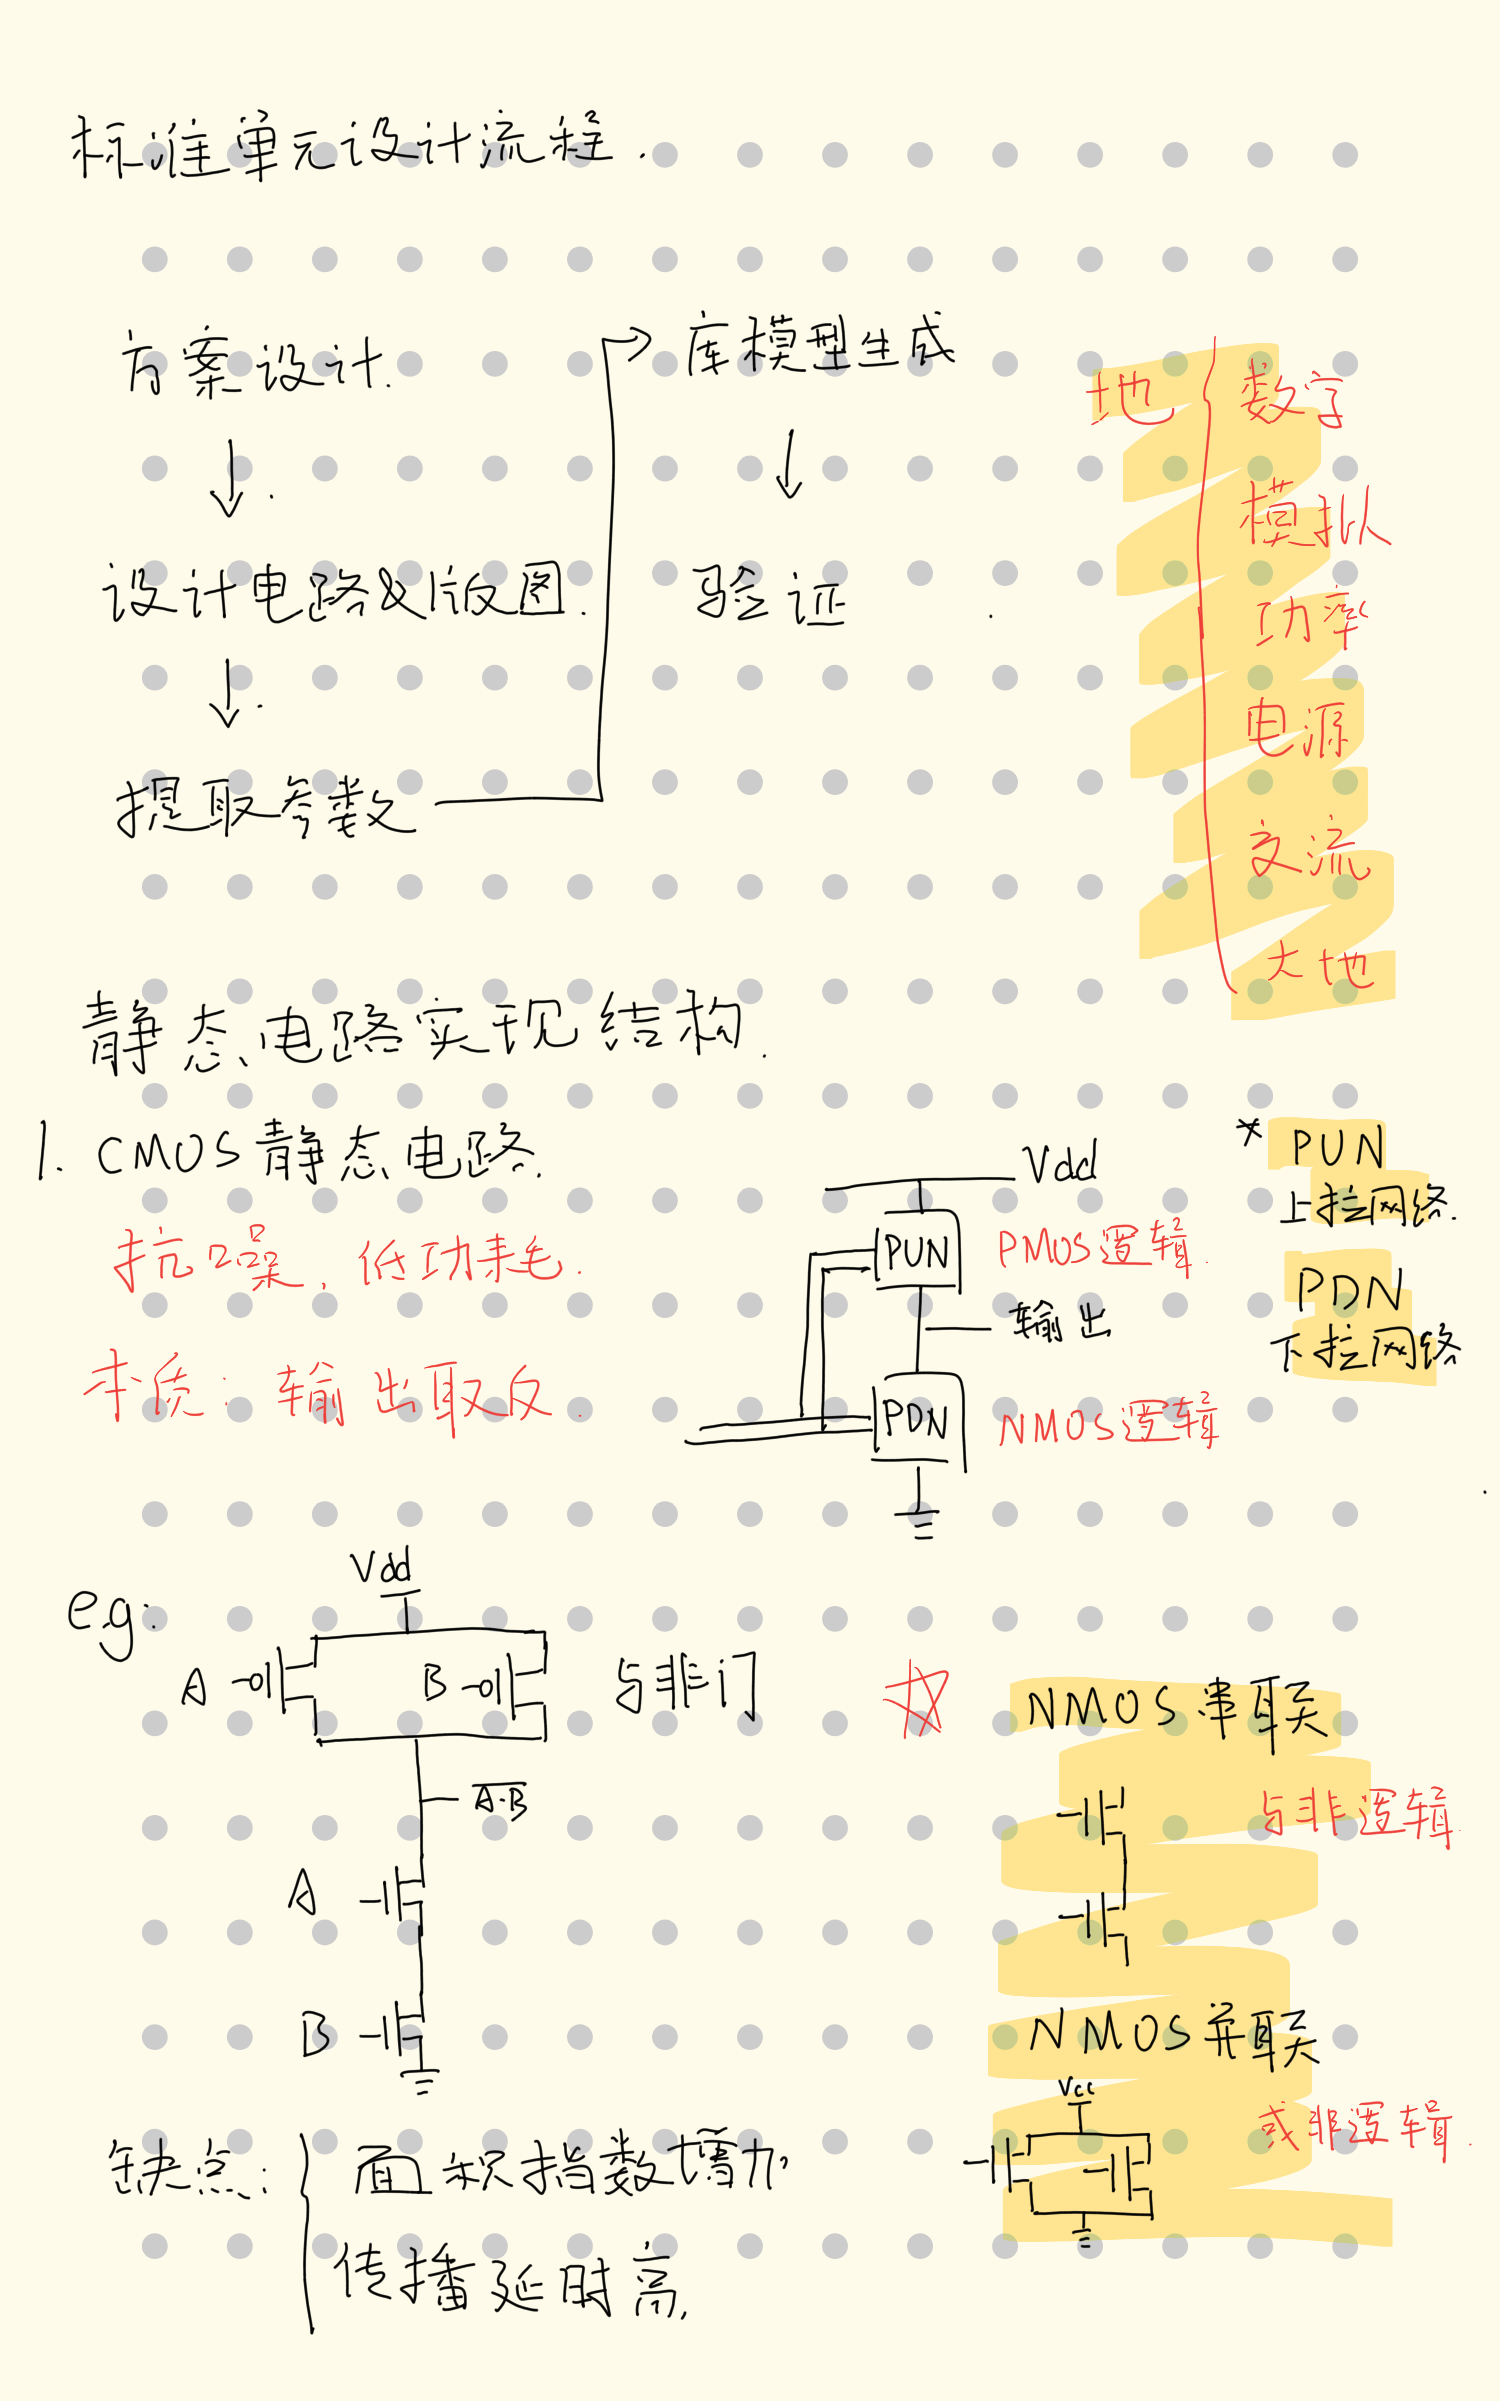 标准单元设计流程.
方案设计.
↓
设计电路&版图.
↓
提取参数
→库模型生成
↓
验证
地
数字
模拟
功率
电源
交流
大地
静态电路实现结构.
1. CMOS静态电路.
抗噪,低功耗.
本质:输出取反.
Vdd
PUN
PMOS逻辑.
输出
PDN
NMOS逻辑
* PUN
上拉网络.
PDN
下拉网络
e.g:
Vdd
A
B
与非门
A·B
A
B
☆ NMOS串联
与非逻辑.
NMOS并联
Vcc
或非逻辑.
缺点:
面积指数增加
传播延时高.